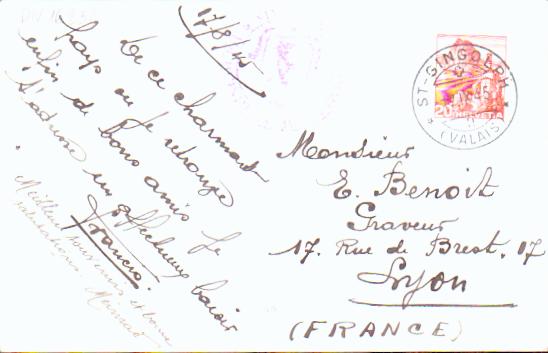 17/8/45
De ce charmant
pays ou je retrouve
enfin de bons amis. Je
t'adresse un affectueux baiser
Francis.
Meilleurs souvenirs et bonnes
salutations
ST-GINGOLPH
45
(VALAIS)
20 HELVETIA
Monsieur
E. Benoit
Graveur
17. Rue de Brest. 17
Lyon
(FRANCE)